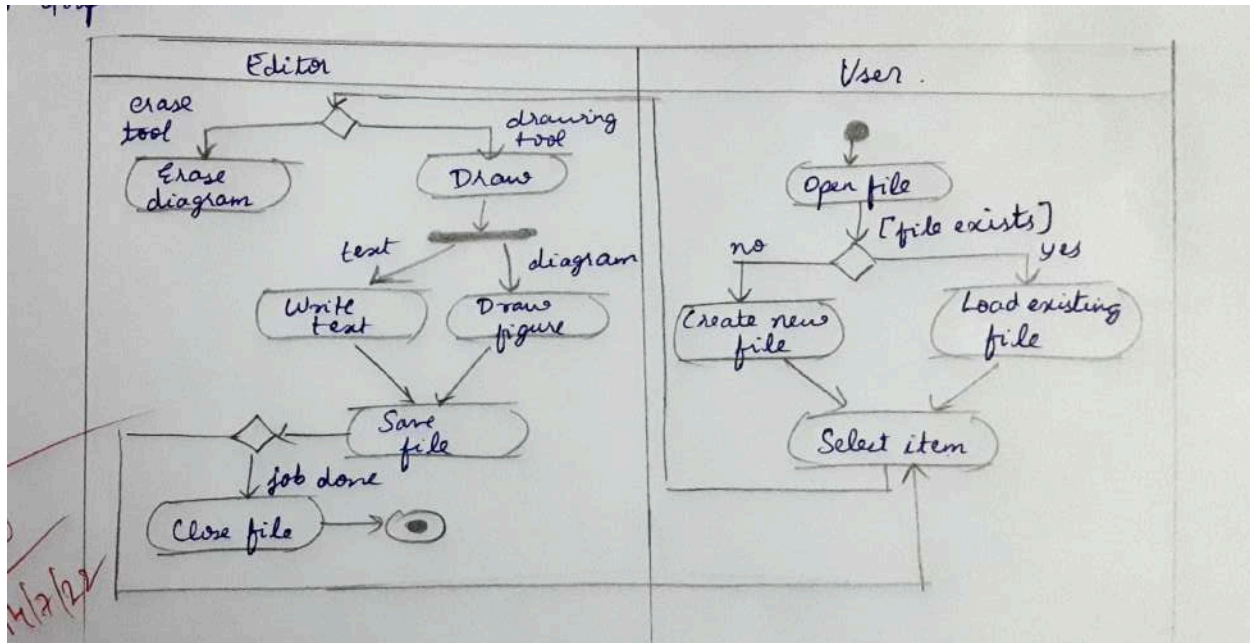 Editor
User.
erase
tool
drawing
tool
Erase
diagram
Draw
text
diagram
Write
text
Draw
figure
Save
file
job done
Close file
Open file
[file exists]
no
yes
Create new
file
Load existing
file
Select item